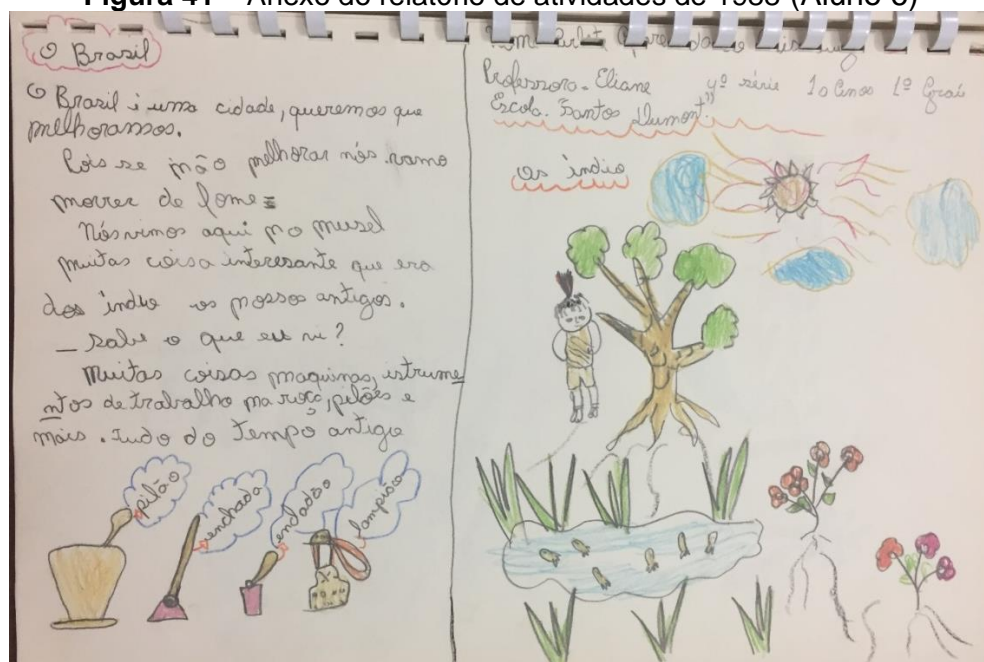 Figura 41 – Anexo do relatório de atividades de 1988 (Aluno 3)
O Brasil
O Brasil i uma cidade, queremos que
melhoramos.
Pois se não melhorar nós vamo
morrer de fome
Nós vimos aqui no musel
muitas coisa interesante que era
dos indio os nossos antigos.
_ Sabe o que eu vi?
Muitas coisas maquinas, istrume
ntos de trabalho na roça, pilões e
mais. Tudo do tempo antigo
pilão
enchada
lampião
Professora. Eliane 4º série
Escola. Santos Dumont"
os índio